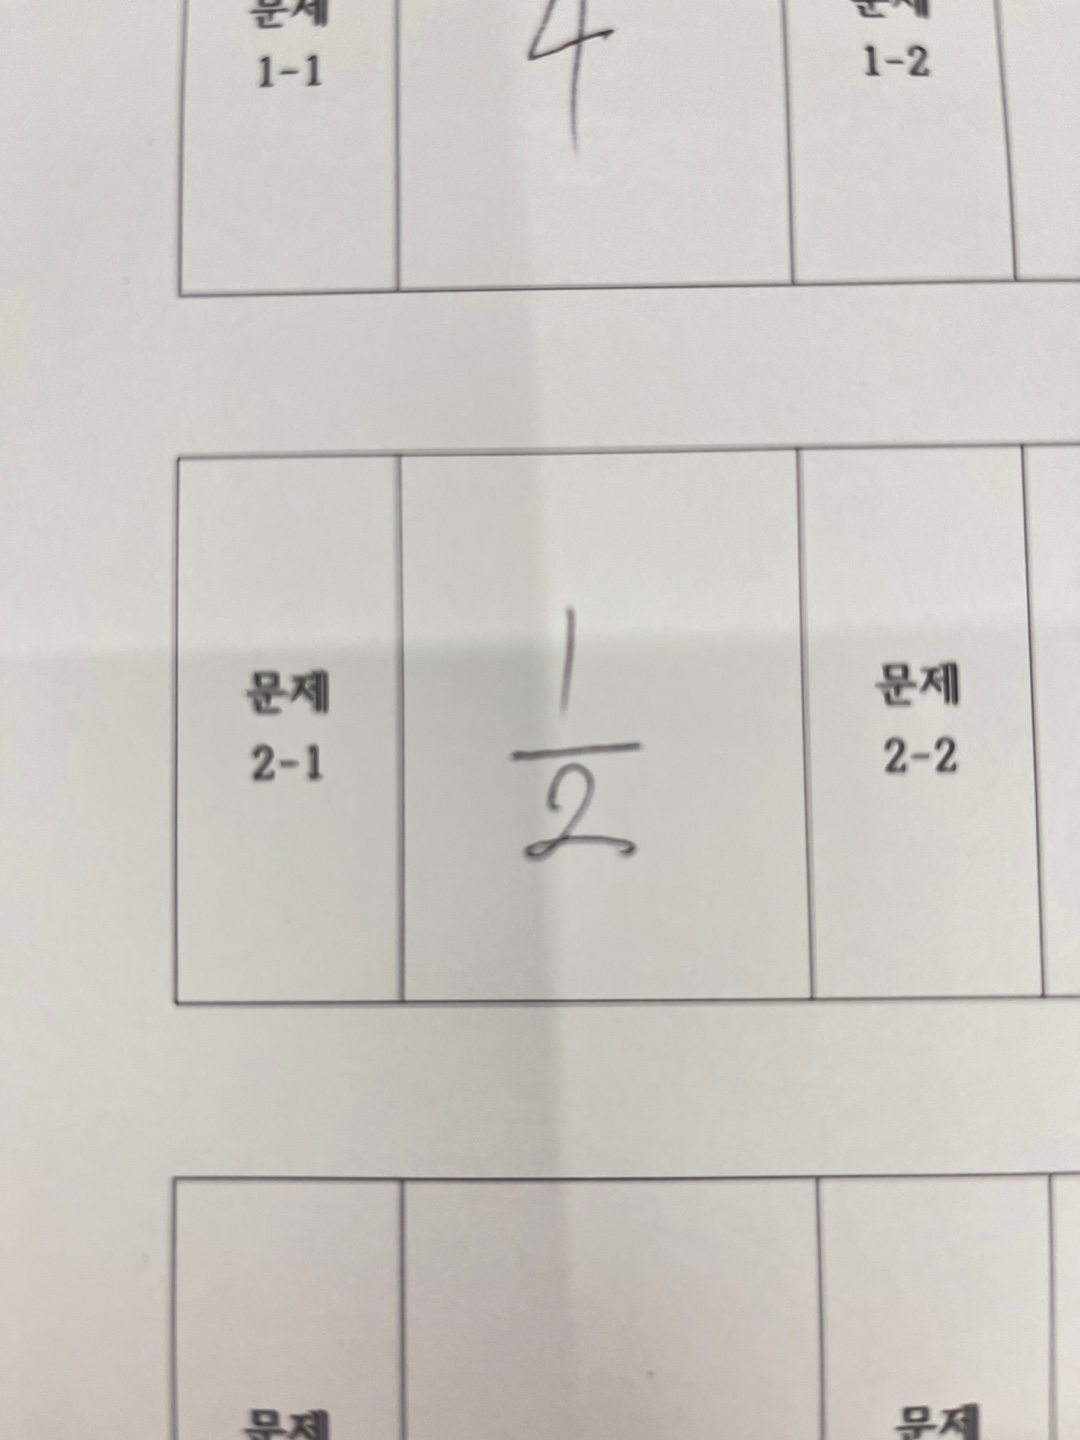 문제
1-1
4
문제
1-2
문제
2-1
1
2
문제
2-2
문제
문제